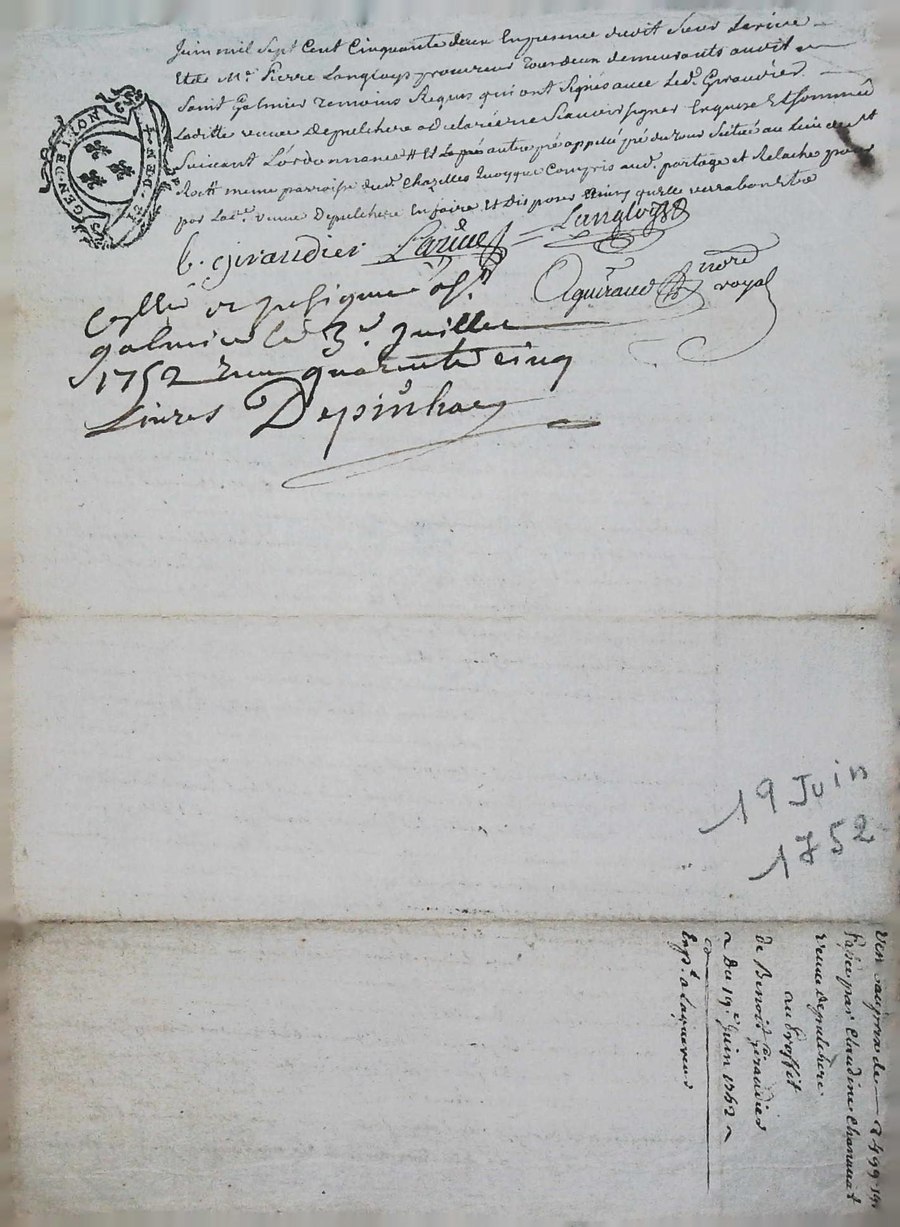 Juin mil Sept Cent Cinquante deux En presence dudit Sieur Larive
Et de Me. Pierre Langloys procureur tous deux demeurants audit
Saint Galmier temoins Requis qui ont Signés avec led. Giraudier
Laditte veuve Depulchere a declaré ne Scavoir signer Enquise Et Sommée
Suivant L'ordonnance # Et autre pré appellé pré du Situé au lieu
même parroisse dud. Chazelles quoyque Compris aud. partage et Relaché
par Lad. veuve Depulchere En faire Et disposer Ainsy quelle verra bon Etre
GEN. DE LION
b. Giraudier Larive Langloys
Aguiraud nore royal
Controllé et insinué a St.
galmier le 3e. juillet
1752 Reçu quarante cinq
Livres Depinhac
19 Juin
1752
Vente au prix de 499 - 19s
Passée par Claudine Chanavat
veuve depulchere
au Proffit
de Benoit Giraudier
Du 19e. Juin 1752
Exp. a Laquereur